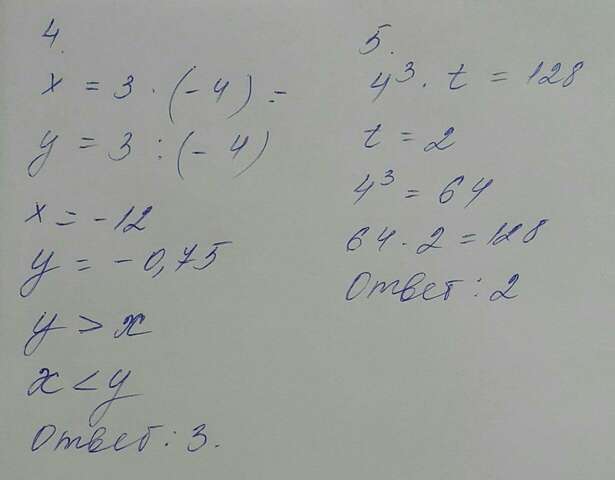 4.
x = 3 · (-4) =
y = 3 : (-4)
x = -12
y = -0,75
y > x
x < y
Ответ: 3.
5.
4³ · t = 128
t = 2
4³ = 64
64 · 2 = 128
Ответ: 2